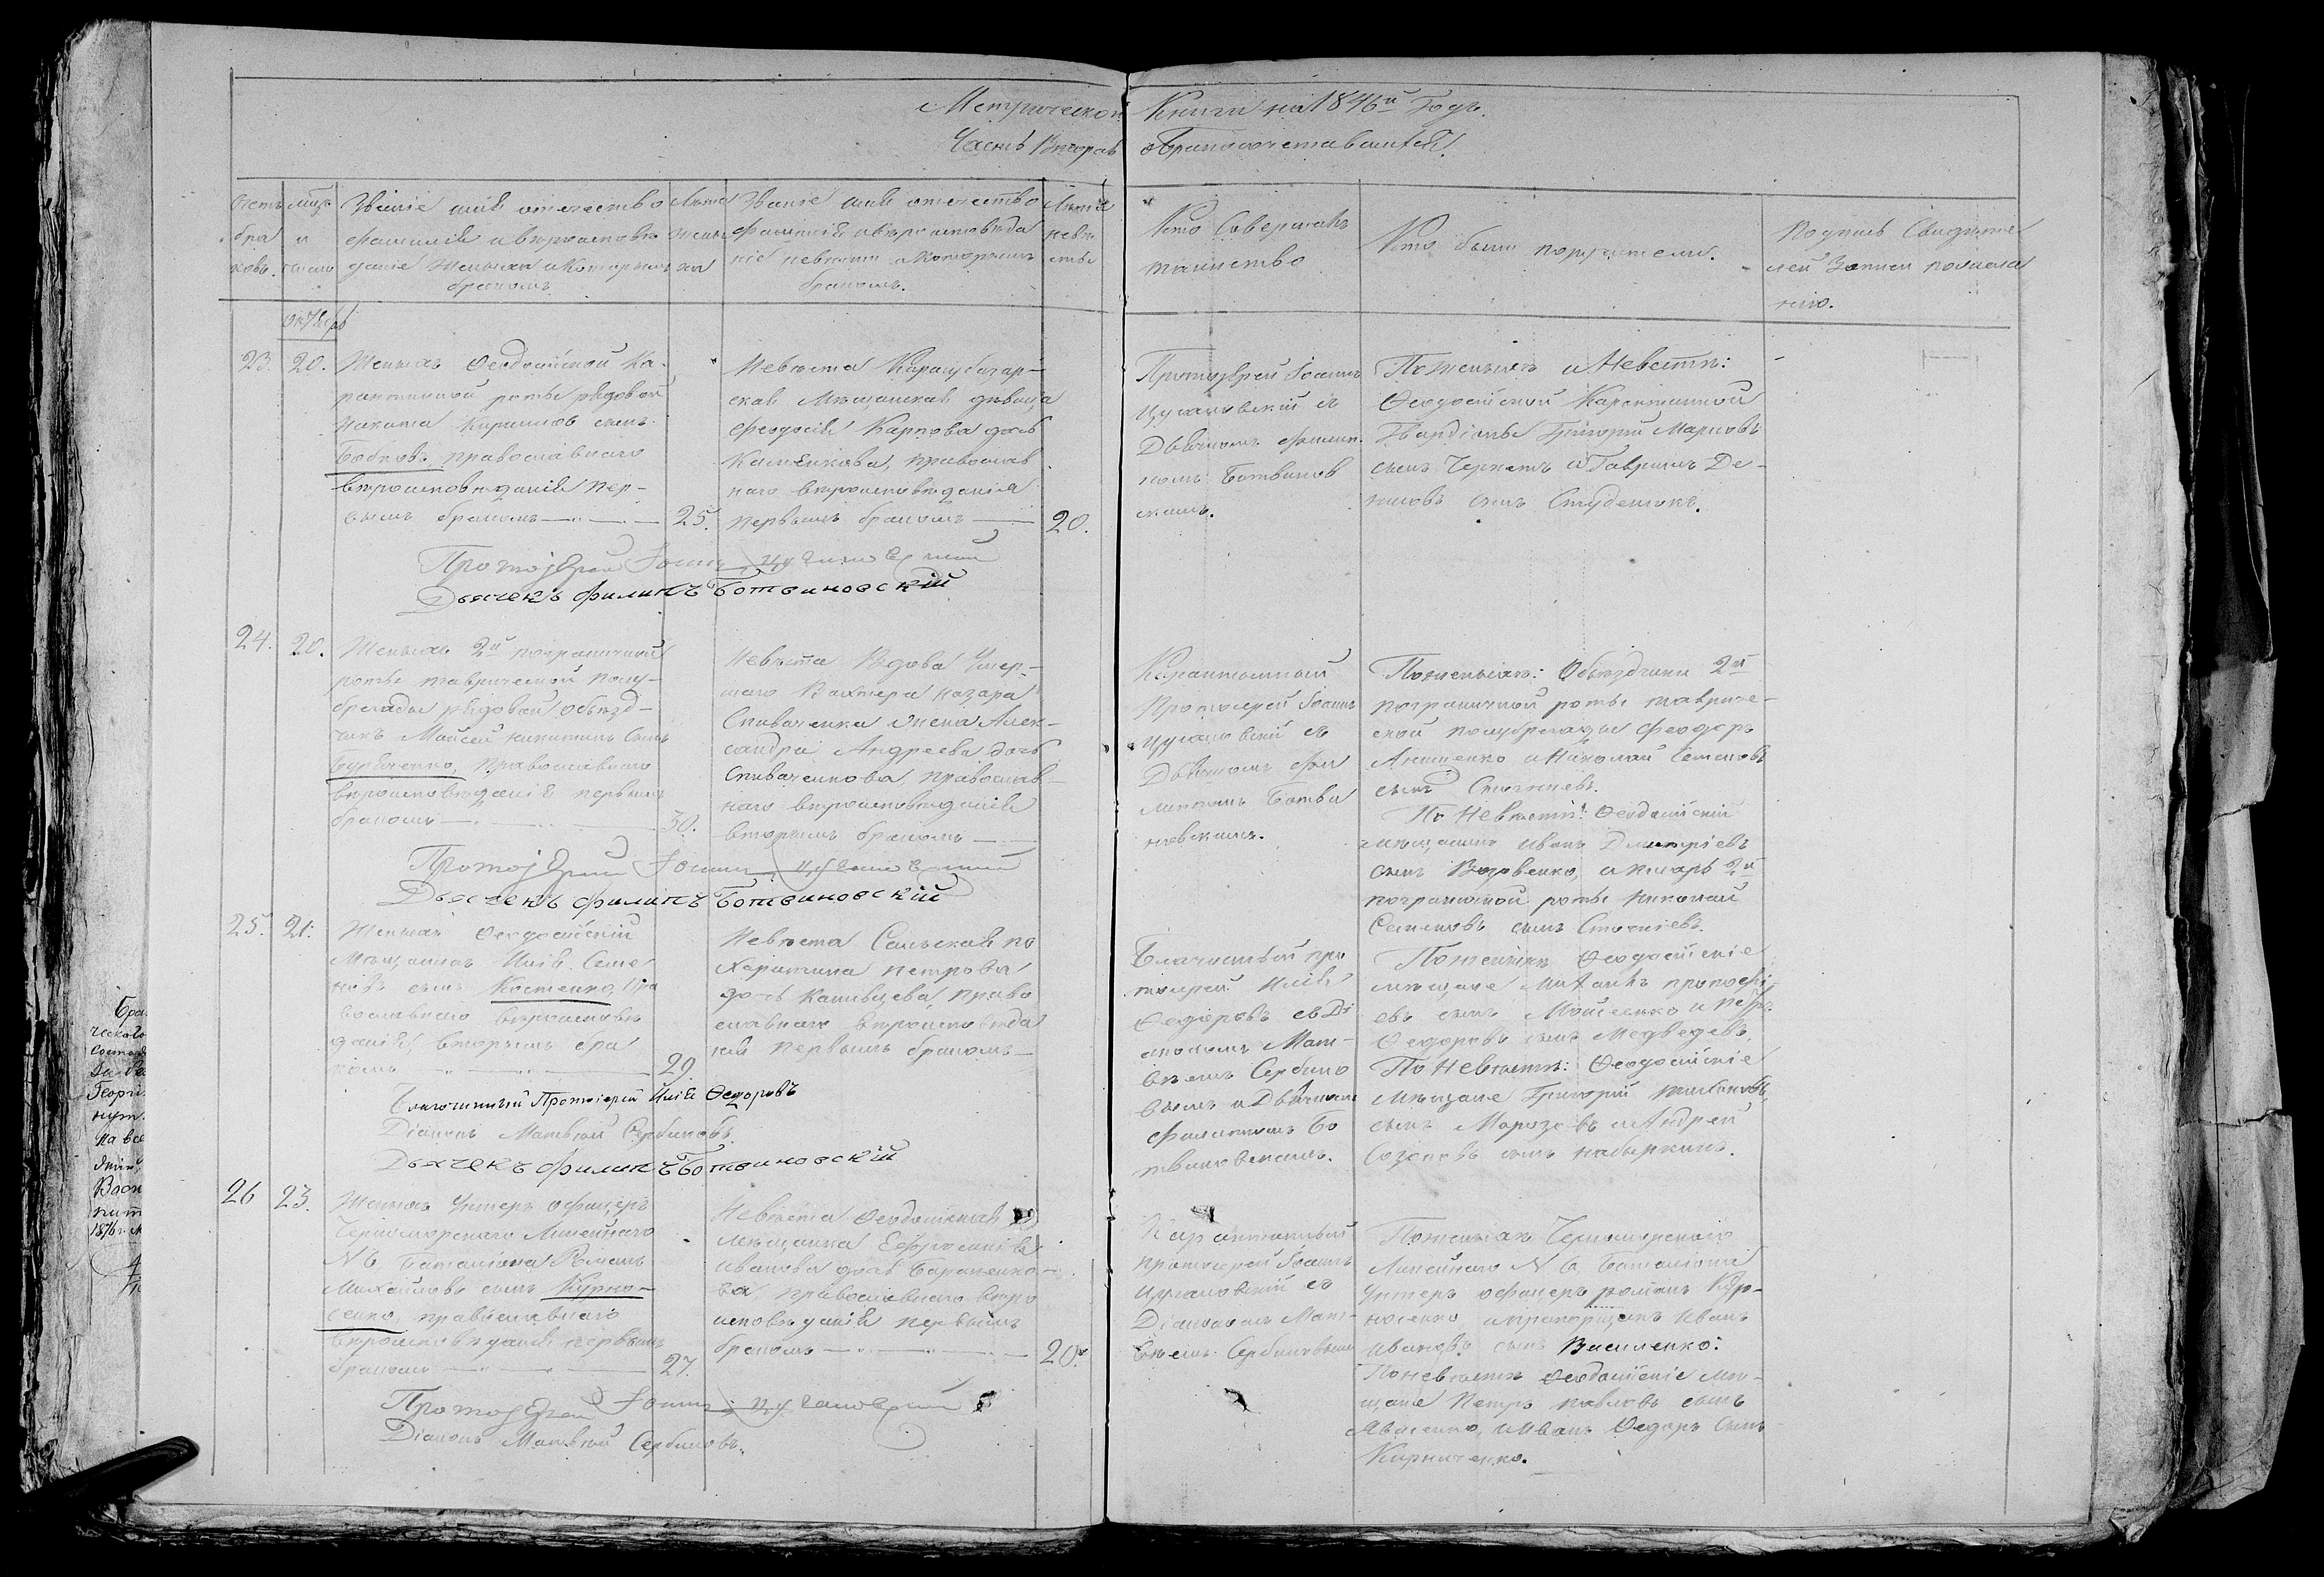 Метрической Книги на 1846й Годъ.
Часть Вторая о бракосочетавшихся.
Счетъ браковъ.
Мѣсяцъ и число
Званіе имя отечество
фамилія и вѣроисповѣ
даніе жениха и которымъ
бракомъ
Лѣта жениха
Званіе имя отечество
фамилія и вѣроисповѣда
ніе невѣсты и которымъ
бракомъ.
Лѣта невѣсты
Кто Совершалъ
таинство
Кто были поручители.
Подпись Свидѣте
лей Записи по жела
нію.
Октября
23. 20.
Женихъ Феодосійской Ка-
рантинной роты рядовой
Никита Кириловъ сынъ
Бобковъ, православнаго
вѣроисповѣданія пер-
вымъ бракомъ 25.
Невѣста Карасубазар-
ская Мѣщанская дѣвица
Феодосія Карпова дочь
православ
наго вѣроисповѣданія
первымъ бракомъ 20.
Протоіерей Іоаннъ
Цугановскій съ
Дьячкомъ Филип
помъ Ботвинов
скимъ.
По женихѣ и Невѣстѣ:
Феодосійской Карантинной
Гвардіоны Григорій Марковъ
сынъ и Гавріилъ Де-
сынъ Студенокъ.
Протоіерей Іоаннъ Цугановскій
Дьячекъ Филипъ Ботвиновскій
24. 20.
Женихъ 2й пограничной
роты таврической полу-
бригады рядовой объѣзд-
чикъ Мойсей Никитинъ Сынъ
православнаго
вѣроисповѣданія первымъ
бракомъ 30.
Невѣста Вдова Умер-
шаго Вахтера Назара
Спиваченка жена Алек-
сандра Андреева дочь
Спиваченкова, православ-
наго вѣроисповѣданія
вторымъ бракомъ
Карантинный
Протоіерей Іоаннъ
Цугановскій съ
Дьячкомъ Фи
липпомъ Ботви
новскимъ.
По женихѣ: Объѣздчики 2й
пограничной роты тавриче-
ской полубригады Феодоръ
и Николай Семеновъ
сынъ
По Невѣстѣ: Феодосійскій
мѣщанинъ Иванъ Дмитріевъ
сынъ и писарь 2й
пограничной роты Николай
Семеновъ сынъ
Протоіерей Іоаннъ Цугановскій
Дьячекъ Филипъ Ботвиновскій
25. 21.
Женихъ Феодосійскій
Мѣщанинъ Илія Семе
новъ сынъ Костенко, Пра
вославнаго вѣроисповѣ
данія, вторымъ бра
комъ 29.
Невѣста
Харитина Петрова
дочь право
славнаго вѣроисповѣда
нія первымъ бракомъ
Благочинный про
тоіерей Илія
Федоровъ съ Ді
акономъ Мат-
вѣемъ Сербино
вымъ и Дьячкомъ
Филиппомъ Бо
твиновскимъ.
По женихѣ Феодосійскіе
мѣщане
евъ сынъ Мойсеенко и Петръ
Федоровъ сынъ Медведевъ.
По Невѣстѣ: Феодосійскіе
Мѣщане Григорій
сынъ Морозовъ и Андрей
Созоновъ сынъ
Благочинный Протоіерей Илія Федоровъ
Діаконъ Матвѣй Сербиновъ.
Дьячекъ Филипъ Ботвиновскій
26 23.
Женихъ Унтеръ офицеръ
Черноморскаго Линейнаго
№ 6, Баталіона Романъ
Михайловъ сынъ Курно-
сенко, православнаго
вѣроисповѣданія первымъ
бракомъ 27.
Невѣста Феодосійская
мѣщанка Ефросинія
Иванова дочь Бараненко-
ва, православнаго вѣро
исповѣданія первымъ
бракомъ 20.
Карантинный
протоіерей Іоаннъ
Цугановскій съ
Діакономъ Мат-
вѣемъ Сербиновымъ
По женихѣ Черноморскаго
Линейнаго № 6, Баталіона
Унтеръ офицеръ романъ Кур-
носенко и прапорщикъ Иванъ
Ивановъ сынъ Василенко:
По невѣстѣ Феодосійскіе мѣ-
щане Петръ Павловъ сынъ
Иванъ Федоръ Сынъ
Кирниченко.
Протоіерей Іоаннъ Цугановскій
Діаконъ Матвѣй Сербиновъ.